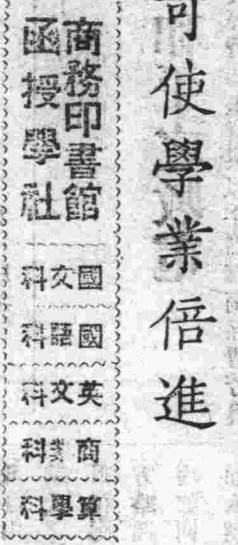 可使學業倍進
商務印書館
函授學社
國文科
國語科
英文科
商業科
算學科